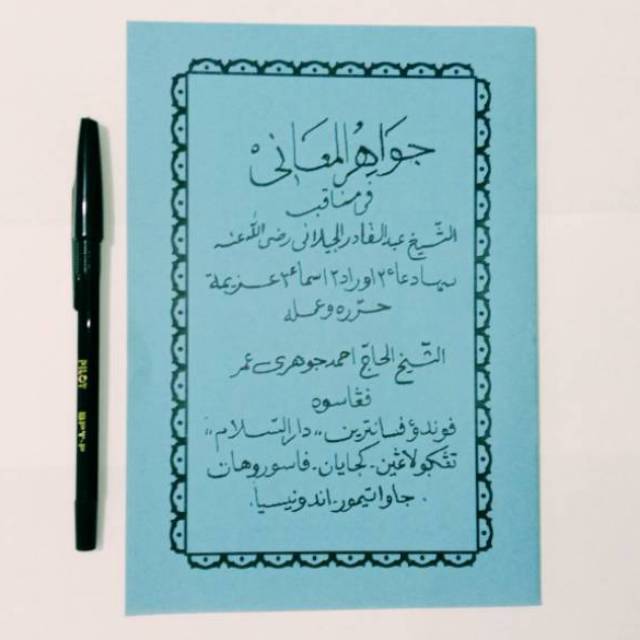 جَوَاهِرُ المَعَانِى
فى مناقب
الشّيخ عبد القادر الجيلانى رضى الله عنه
سرتا دعاء٢ اوراد٢ اسماء٢ عزيمة
حرّره وعمله
الشّيخ الحاجّ احمد جوهرى عمر
ڤڠاسوه
ڤوندوء ڤسانترين ,,دار السّلام,,
تڠڬولاڠين - كجايان - ڤاسوروهان
جاوا تيمور - اندونيسيا.
PILOT
BPT-P